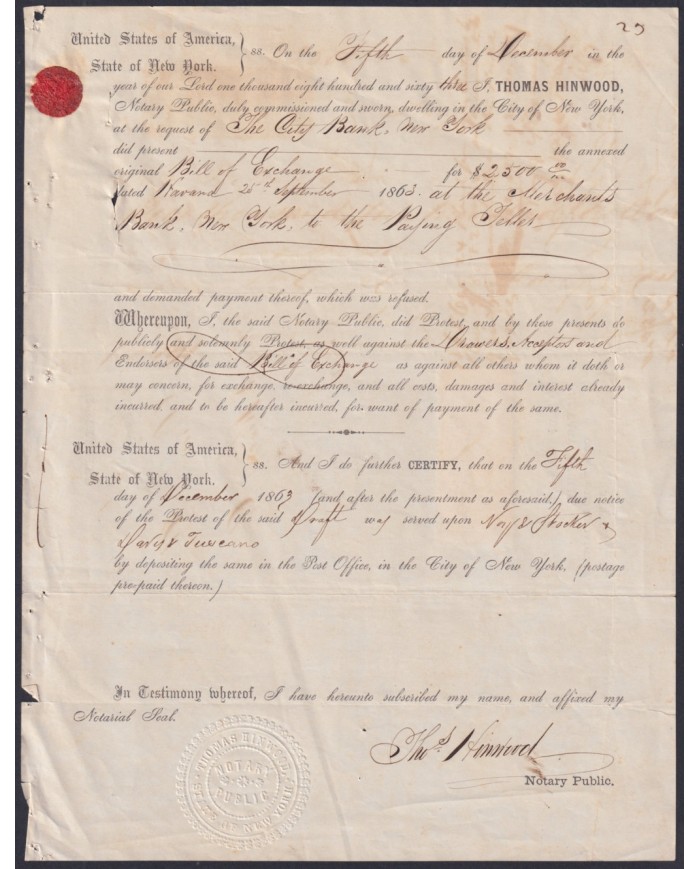 25
United States of America,
State of New York.
ss. On the Fifth day of December in the
year of our Lord one thousand eight hundred and sixty three I, THOMAS HINWOOD,
Notary Public, duly commissioned and sworn, dwelling in the City of New York,
at the request of The City Bank, New York
did present the annexed
original Bill of Exchange for $2500 00/00
dated Havana 25th September 1863. at the Merchants
Bank, New York, to the Paying Teller
and demanded payment thereof, which was refused.
Whereupon, I, the said Notary Public, did Protest, and by these presents do
publicly and solemnly Protest, as well against the Drawers, Acceptors and
Endorsers of the said Bill of Exchange as against all others whom it doth or
may concern, for exchange, re-exchange, and all costs, damages and interest already
incurred, and to be hereafter incurred, for want of payment of the same.
United States of America,
State of New York.
ss. And I do further CERTIFY, that on the Fifth
day of December 1863 (and after the presentment as aforesaid,) due notice
of the Protest of the said Draft was served upon &
by depositing the same in the Post Office, in the City of New York, (postage
pre-paid thereon.)
In Testimony whereof, I have hereunto subscribed my name, and affixed my
Notarial Seal.
THOMAS HINWOOD
NOTARY
PUBLIC
STATE OF NEW YORK
Thos Hinwood
Notary Public.